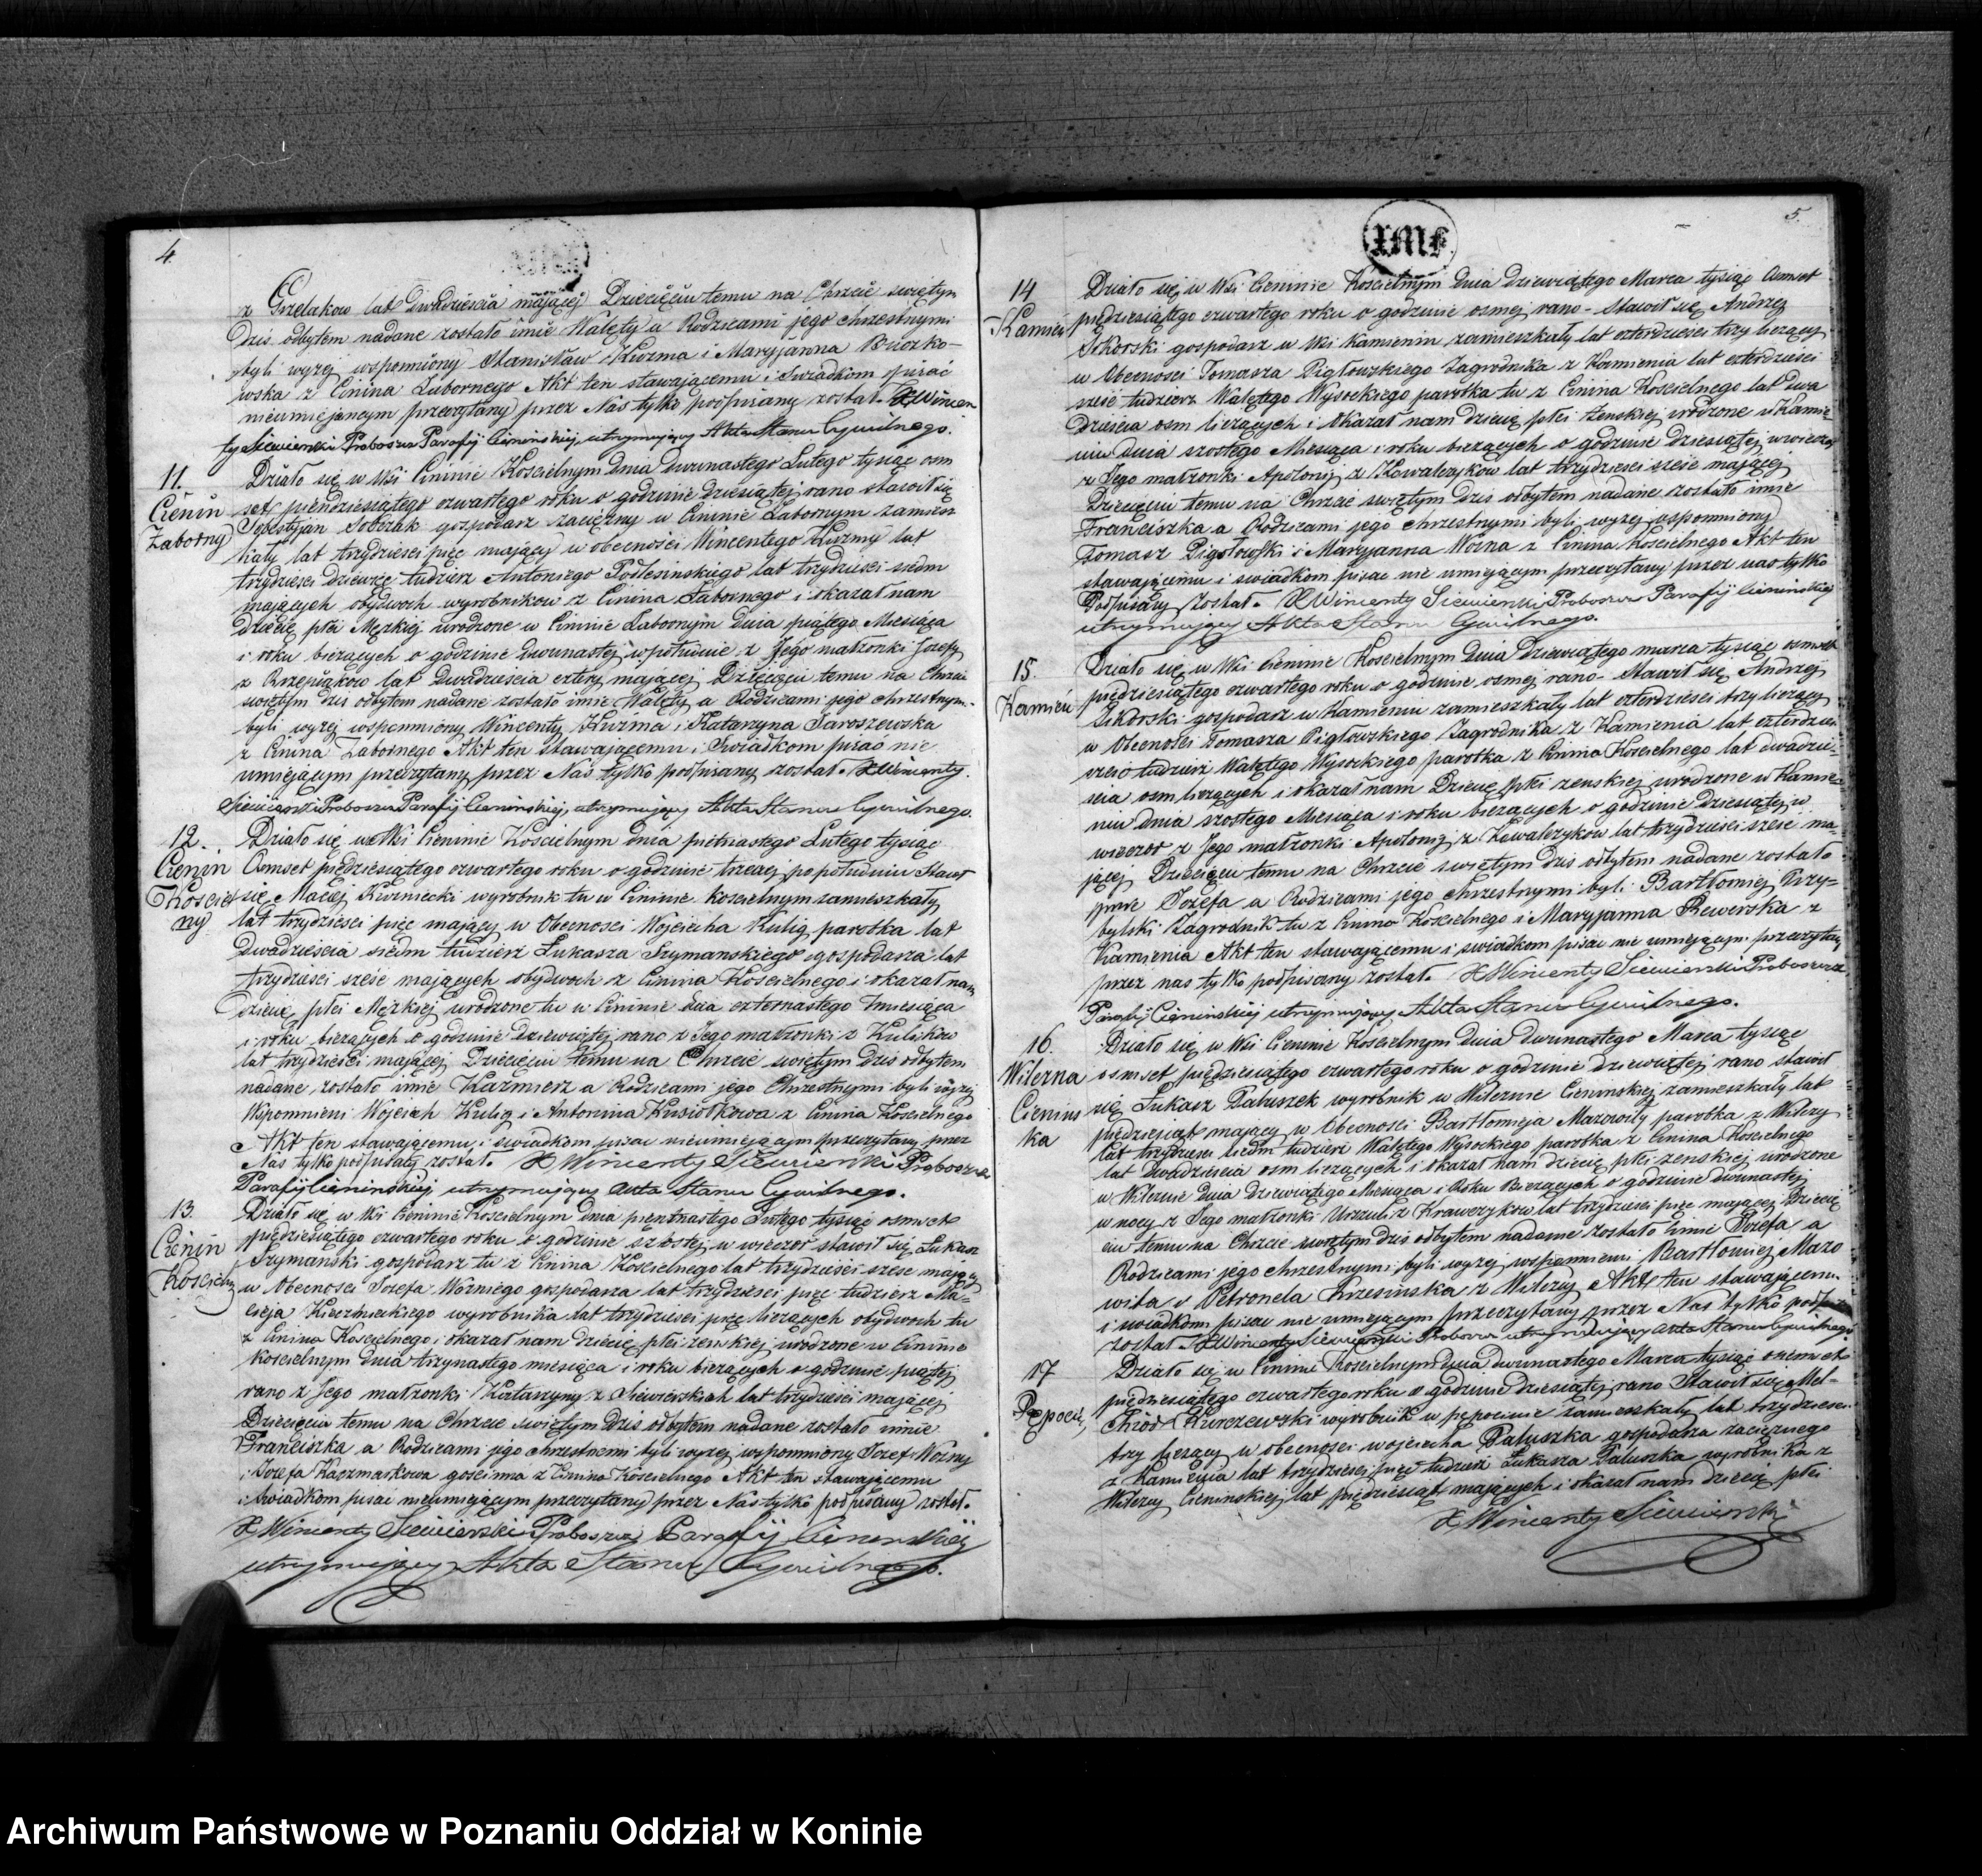 4.
z Grzelakow lat Dwadzieścia mającej Dziecięciu temu na Chrzcie świętym
Dziś odbytem nadane zostało imie Walęty a Rodzicami jego chrzestnymi
byli wyżej wspomniony Stanisław Kuzma i Maryjanna Buczko-
woska z Cinina Zabornego Akt ten stawającemu i Swiadkom pisać
nieumiejancym przeczytany przez Nas tylko podpisany został X Wincen
ty Siewierski Proboszcz Parafij Cieninskiej, utrzymujący Akta Stanu Cywilnego.
11.
Cienin
Zabotny
Działo się w Wsi Cininie Kościelnym Dnia dwunastego Lutego tysiąc osm
set pieńdziesiątego czwartego roku o godzinie dziesiątej rano stawił się
Sobestjan Sobczak gospodarz zaciężny w Cininie Zabornym zamiesz
kały lat trzydzieści pięc mający w obecności Wincentego Kuzmy lat
trzydzieści dziewięć tudzierz Antoniego Podlesinskiego lat trzydzieści siedm
mających obydwoch wyrobnikow z Cinina Zabornego i okazał nam
Dziecię płci Męzkiej urodzone w Cininie Zabornym Dnia piątego Miesiąca
i roku bieżących o godzinie dwunastej w południe z Jego małzonki Jozefy
z Rzepiakow lat Dwadzieścia cztery mającej Dziecięciu temu na Chrzcie
swiętym dziś odbytem nadane zostało imie Walęty a Rodzicami jego chrzestnym-
byli wyżej wspomniony Wincenty Kuzma i Katarzyna Jaroszewska
z Cinina Zabornego Akt ten stawającemu i Swiadkom pisać nie
umiejącym przeczytany przez Nas tylko podpisany został X Wincenty
Siewierski Proboszcz Parafij Cieninskiej, utrzymujący Akta Stanu Cywilnego.
12.
Cienin
Kosciel
ny
Działo się w Wsi Cieninie Kościelnym dnia piętnastego Lutego tysiąc
Osmset piędziesiątego czwartego roku o godzinie trzeciej po południu Stawił
się Maciej wyrobnik tu w Cininie koscielnym zamieszkały
lat trzydzieści pięc mający w Obecnosci Wojciecha Kulig parobka lat
Dwadzieścia siedm tudzierz Łukasza Szymanskiego gospodarza lat
trzydzieści sześc mających obydwoch z Cinina Kościelnego i okazał nam
Dziecię płci Męzkiej urodzone tu w Cininie dnia czternastego Miesiąca
i roku bieżących o godzinie dziewiątej rano z Jego małżonki z Kulikow
lat trzydzieści mającej Dziecięciu temu na Chrzcie świętym Dziś odbytem
nadane zostało imie Kazmierz a Rodzicami jego Chrzestnymi byli wyżej
Wspomnieni Wojciech Kulig i Antonina Kusiołkowa z Cinina Kościelnego
Akt ten stawającemu i swiadkom pisac nieumiejącym przeczytany przez
Nas tylko podpisany został. X Wincenty Siewierski Proboszcz
Parafij Cieninskiej, utrzymujący Akta Stanu Cywilnego.
13.
Cienin
Koscielny
Działo się w Wsi Cieninie Koscielnym Dnia pientnastego Lutego tysiąc osmset
piędziesiątego czwartego roku o godzinie szostej w wieczor stawił się Łukasz
Szymanski gospodarz tu z Cinina Koscielnego lat trzydziesci szesc mający
w Obecnosci Jozefa Wozniego gospodarza lat trzydziesci pięc tudzierz Ma
cieja wyrobnika lat trzydziesci pięc liczących obydwoch tu
z Cinina Koscielnego i okazał nam dziecię płci zenskiej urodzone w Cininie
koscielnym dnia trzynastego miesiąca i roku bieżących o godzinie piątej
rano z Jego małzonki Katarzyny z Siewierskich lat trzydziesci mającej
Dziecięciu temu na Chrzcie Swiętym Dzis odbytem nadane zostało imie
Franciszka a Rodzicami jego chrzestnemi byli wyżej wspomniony Jozef Wozny
i Jozefa Kaczmarkowa goscinna z Cinina Koscielnego Akt ten stawającemu
i Swiadkom pisac nieumiejącym przeczytany przez Nas tylko podpisany został.
X Wincenty Siewierski Proboszcz Parafij Cieninskiej
utrzymujący Akta Stanu Cywilnego.
5.
14
Kamień
Działo się w Wsi Cieninie Koscielnym Dnia Dziewiątego Marca tysiąc Osmset
piędziesiątego czwartego roku o godzinie osmej rano - Stawił się Andrzej
Sikorski gospodarz w Wsi Kamieniu zamieszkały lat czterdziesci trzy liczący
w Obecnosci Tomasza Pigłowskiego Zagrodnika z Kamienia lat czterdziesci
szesc tudzierz Walętego Wysockiego parobka tu z Cinina Koscielnego lat dwa
dziescia osm liczących i okazał nam dziecię płci zenskiej urodzone w Kamie-
niu dnia szostego Miesiąca i roku bieżących o godzinie dziesiątej w wieczor
z Jego małzonki Apolonij z Kowalczykow lat trzydziesci szesc mającej
Dziecięciu temu na Chrzcie swiętym dzis odbytem nadane zostało imie
Franciszka a Rodzicami jego chrzestnymi byli wyzej wspomniony
Tomasz Pigłowski i Maryjanna Wozna z Cinina Koscielnego Akt ten
stawającemu i swiadkom pisac nie umiejącym przeczytany przez nas tylko
Podpisany został. X Wincenty Siewierski Proboszcz Parafij Cieninskiej
utrzymujący Akta Stanu Cywilnego.
15.
Kamień
Działo się w Wsi Cieninie Koscielnym Dnia Dziewiątego marca tysiąc osmset
pięcdziesiątego czwartego roku o godzinie osmej rano - Stawił się Andrzej
Sikorski gospodarz w Kamieniu zamieszkały lat czterdziesci trzy liczący
w Obecnosci Tomasza Pigłowskiego Zagrodnika z Kamienia lat czterdzieści
szesc tudzierz Walętego Wysockiego parobka z Cinina Koscielnego lat dwadzie-
scia osm liczących i okazał nam Dziecię płci zenskiej urodzone w Kamie-
niu dnia szostego Miesiąca i roku bieżących o godzinie Dziesiątej w
wieczor z Jego matzonki Apolonij z Kowalczykow lat trzydziesci szesc ma-
jącej Dziecięciu temu na Chrzcie swiętym dzis odbytem nadane zostało
imie Jozefa a Rodzicami jego chrzestnymi byli Bartłomiej Przy-
bylski Zagrodnik tu z Cinina Koscielnego i Maryjanna Rewerska z
Kamienia Akt ten stawającemu i swiadkom pisac nie umiejącym przeczytany
przez nas tylko podpisany został. X Wincenty Siewierski Proboszcz
Parafij Cieninskiej utrzymujący Akta Stanu Cywilnego.
16.
Wilczna
Cienins
ka
Działo się w Wsi Cieninie Koscielnym Dnia Dwunastego Marca tysiąc
osmset piędziesiątego czwartego roku o godzinie dziewiątej rano stawił
się Łukasz Paluszek wyrobnik w Wilcznie Cieninskiej zamieszkały lat
piędziesiąt mający w Obecnosci Bartłomieja Mazowity parobka z Wilczny
lat trzydziesci siedm tudzierz Walętego Wysockiego parobka z Cinina Koscielnego
lat dwadziescia osm liczących i okazał nam dziecię płci zenskiej urodzone
w Wilcznie Dnia Dziewiątego Miesiąca i Roku Bieżących o godzinie dwunastej
w nocy z Jego małzonki Urszuli z Krawczykow lat trzydziesci pięc mającej Dziecię
ciu temu na Chrzcie swiętym dzis odbytem nadane zostało imie Jozefa a
Rodzicami jego chrzestnymi byli wyzej wspomnieni Bartłomiej Mazo
wita i Petronela Krzesinska z Wilczny Akt ten stawającemu
i swiadkom pisac nie umiejącym przeczytany przez Nas tylko podp
został X Wincenty Siewierski Proboszcz utrzymujący Akta Stanu Cywilnego
17
Pępocin
Działo się w Cininie Koscielnym dnia dwunastego Marca tysiąc osiemset
pięcdziesiątego czwartego roku o godzinie dziesiątej rano Stawił się Mel-
chiod Kurczewski wyrobnik w pępocinie zamieszkały lat trzydziesci
trzy liczący w obecnosci wojciecha Paluszka gospodarza zaciężnego
z Kamienia lat trzydziesci pięc tudzierz Łukasza Paluszka wyrobnika z
Wilczny Cieninskiej lat pięcdziesiąt mających i okazał nam dziecię płci
X Wincenty Siewierski
XMK
Archiwum Państwowe w Poznaniu Oddział w Koninie